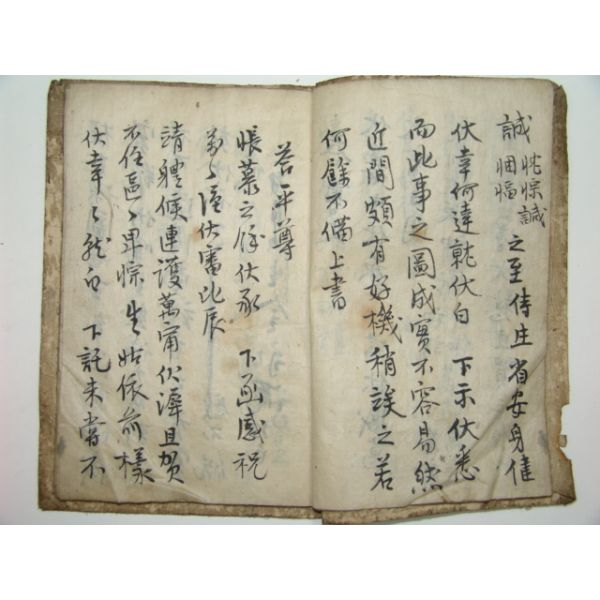 誠 忱悰誠 悃愊 之至侍庄省安身佳
伏幸何達就伏白 下示伏悉
而此事之圖成實不容易然
近間頗有好機稍誒之若
何餘不備上書
答平尊
悵慕之餘伏承 下函感祝
萬〻謹伏審比辰
請體候連護萬甯伏漽且賀
不任區〻卑悰生姑依前樣
伏幸〻就白 下託来當不